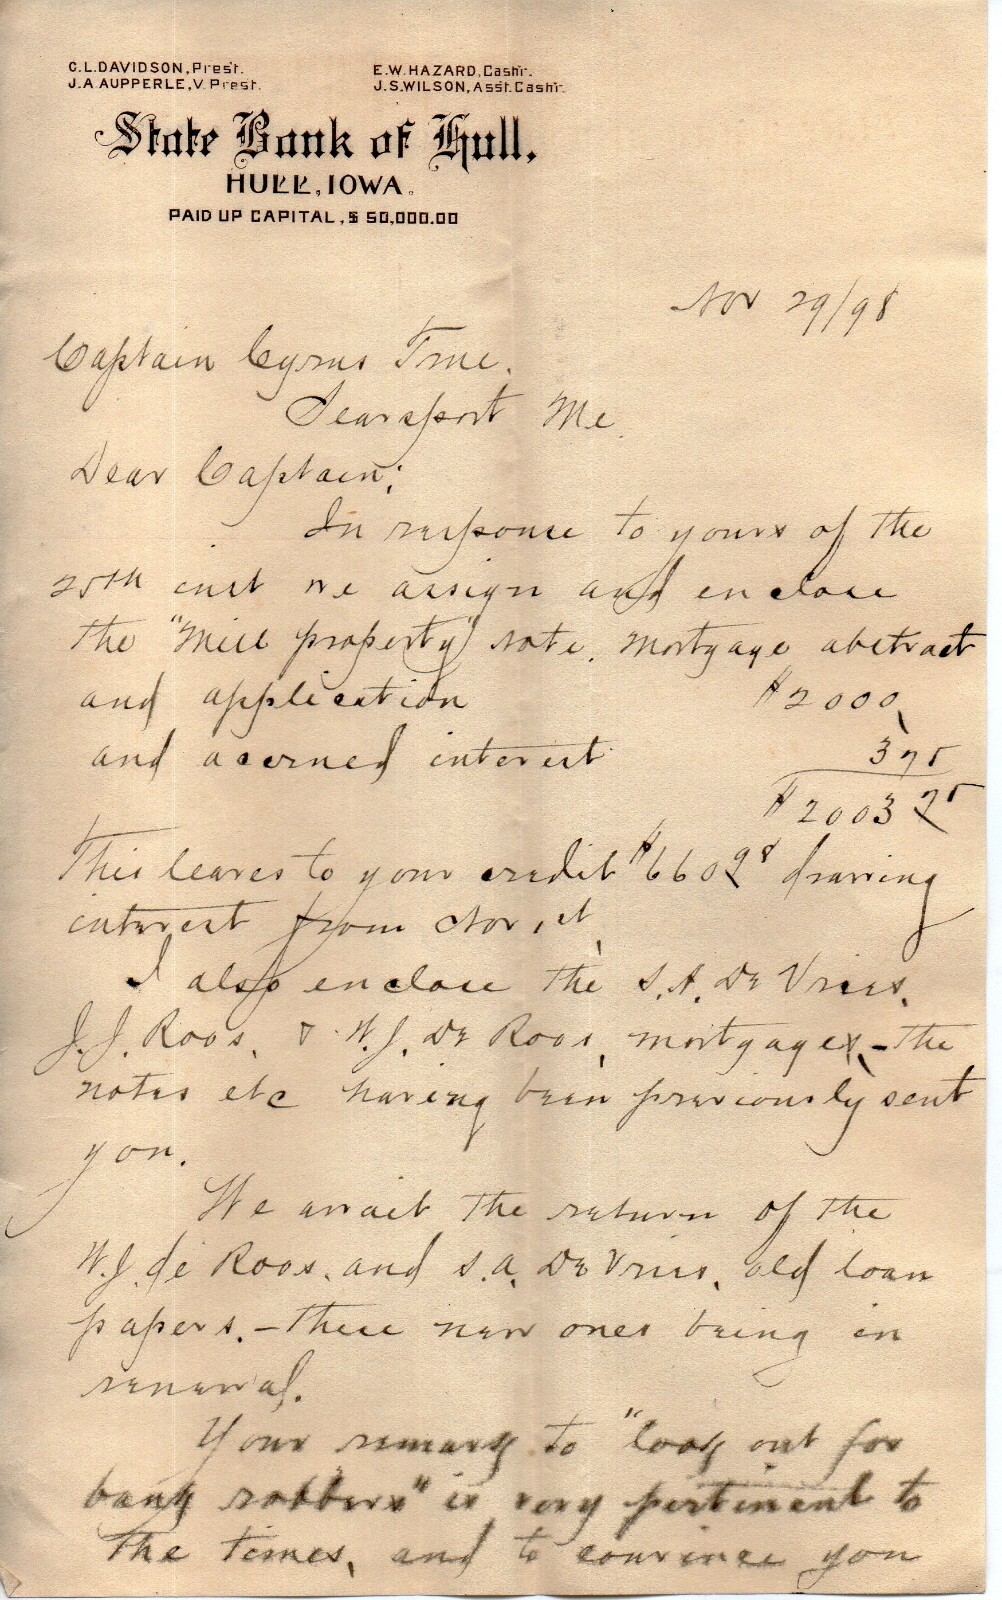 C.L.DAVIDSON, Pres't.
E.W.HAZARD, Cash'r.
J.A.AUPPERLE, V.Prest.
J.S.WILSON, Asst.Cash'r.
State Bank of Hull.
HULL, IOWA.
PAID UP CAPITAL, $ 50,000.00
Nov 29/98
Captain Cyrus True.
Searsport Me.
Dear Captain;
In response to yours of the
25th inst we assign and enclose
the "Mill property" note. mortgage abstract
and application $2000.
and accrued interest 3 75
$2003 75
This leaves to your credit $660 98 drawing
interest from Nov. 1st.
I also enclose the S.A. De Vries,
J.J. Roos, & W.J. De Roos, mortgages, - the
notes etc having been previously sent
you.
We await the return of the
W.J. de Roos. and S.A. De Vries, old loan
papers. - these new ones being in
renewal.
Your remark to "look out for
bank robbers" is very pertinent to
the times, and to convince you